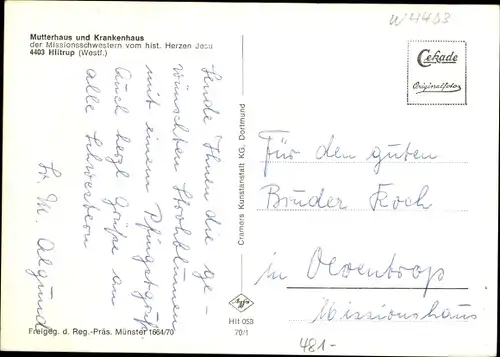 W 4403
Mutterhaus und Krankenhaus
der Missionsschwestern vom hlst. Herzen Jesu
4403 Hiltrup (Westf.)
Cekade
Originalfoto
Sende Ihnen die ge-
wünschten Strohblumen
mit einem Pfingstgruß.
Auch herzl. Grüße an
alle Schwestern
Sr. M.
Cramers Kunstanstalt KG, Dortmund
Für den guten
Bruder Koch
in Oeventrop
Missionshaus
Hlt 058
70/1
481-
Freigeg. d. Reg.-Präs. Münster 1664/70